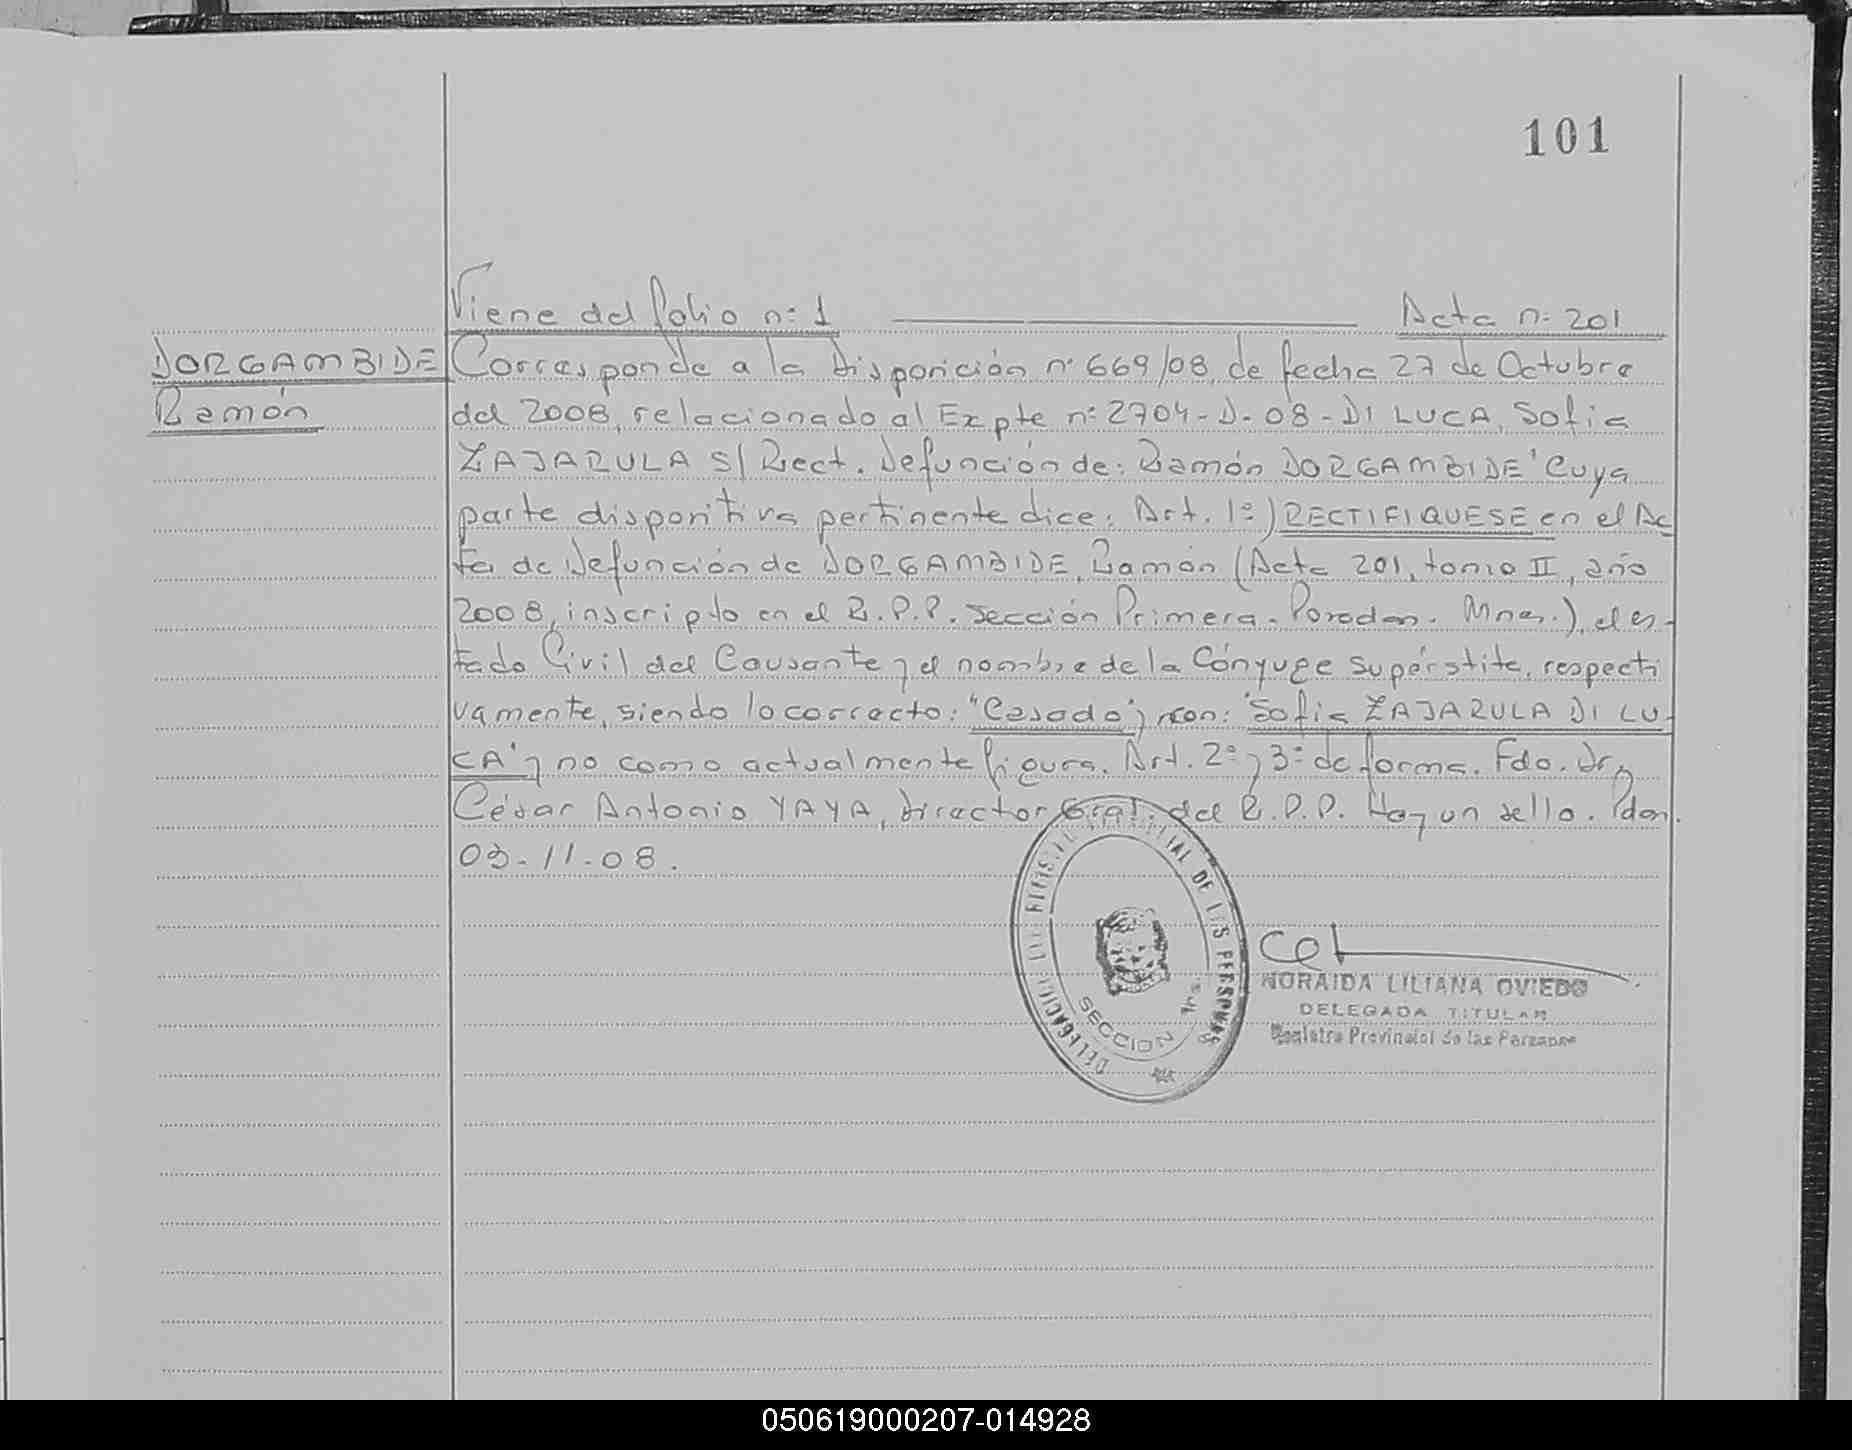 101
Viene del folio n: 1 Acta n: 201
DORGAMBIDE
Ramón
Corresponde a la Disposición nº 669/08, de fecha 27 de Octubre
del 2008, relacionado al Expte n: 2704-D-08-DI LUCA, Sofia
ZAJARULA S/ Rect. Defunción de: Ramón DORGAMBIDE' Cuya
parte dispositiva pertinente dice: Art. 1º) RECTIFIQUESE en el Ac
ta de Defunción de DORGAMBIDE, Ramón (Acta 201, tomo II, año
2008, inscripto en el R.P.P. Sección Primera. Posadas. Mnes.), el es-
tado Civil del Causante y el nombre de la Cónyuge supérstite, respecti
vamente, siendo lo correcto: "Casado" y con: "Sofia ZAJARULA DI LU-
CA" y no como actualmente figura. Art. 2º y 3º de forma. Fdo. Dr.
César Antonio YAYA, Director Gral. del R.P.P. Hay un sello. Pdas.
03-11-08.
DELEGACION DEL REGISTRO PROVINCIAL DE LAS PERSONAS
SECCION 1ra.
NORAIDA LILIANA OVIEDO
DELEGADA TITULAR
Registro Provincial de las Personas
050619000207-014928